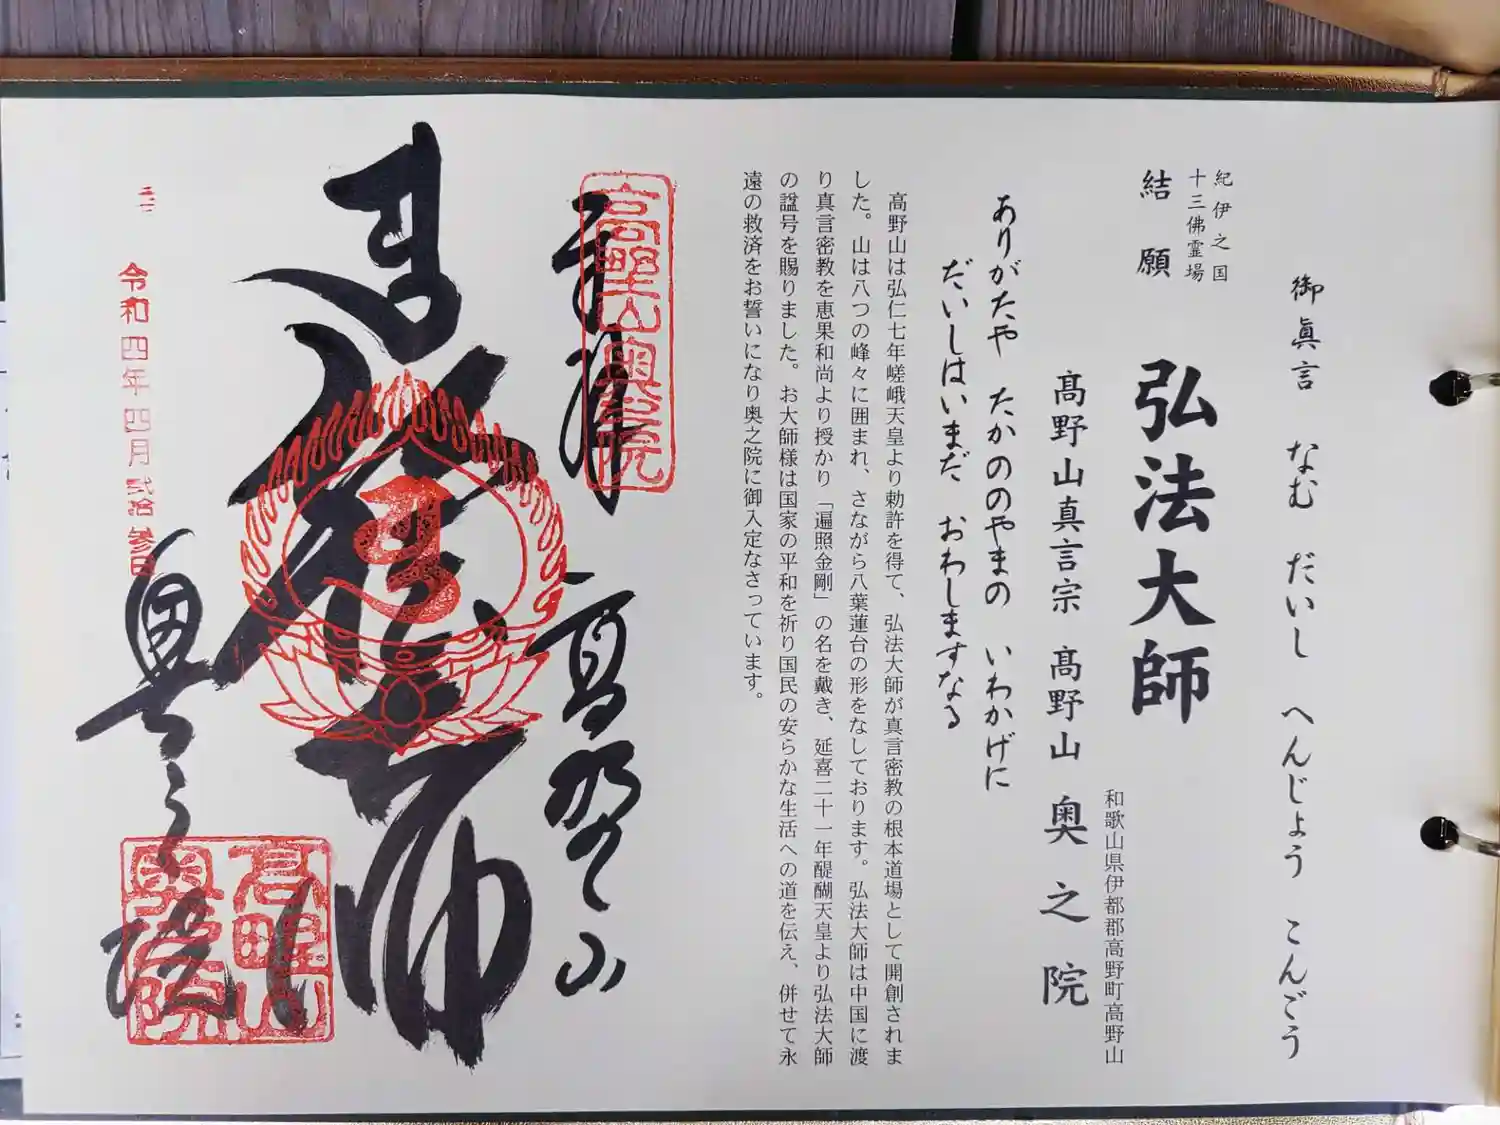 御眞言 なむ だいし へんじょう こんごう
紀伊之国
十三佛霊場
結願 弘法大師
和歌山県伊都郡高野町高野山
高野山真言宗 高野山 奥之院
ありがたや たかののやまの いわかげに
だいしはいまだ おわしますなる
高野山は弘仁七年嵯峨天皇より勅許を得て、弘法大師が真言密教の根本道場として開創されま
した。山は八つの峰々に囲まれ、さながら八葉蓮台の形をなしております。弘法大師は中国に渡
り真言密教を恵果和尚より授かり「遍照金剛」の名を戴き、延喜二十一年醍醐天皇より弘法大師
の諡号を賜りました。お大師様は国家の平和を祈り国民の安らかな生活への道を伝え、併せて永
遠の救済をお誓いになり奥之院に御入定なさっています。
高野山奥之院
奉拝 高野山
弘法大師
令和四年四月弐拾参日
奥之院
高野山
奥之院